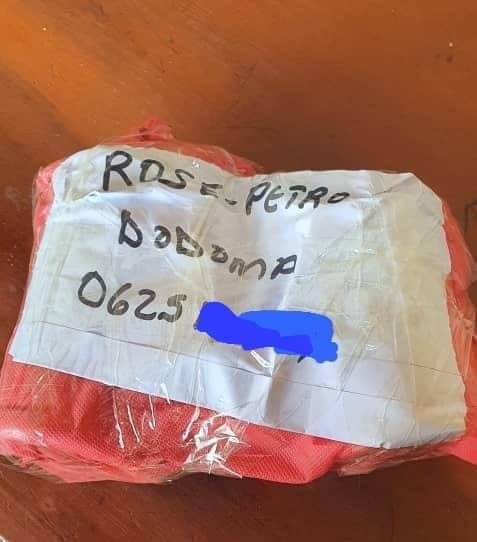 ROSE-PETRO
DODOMA
0625